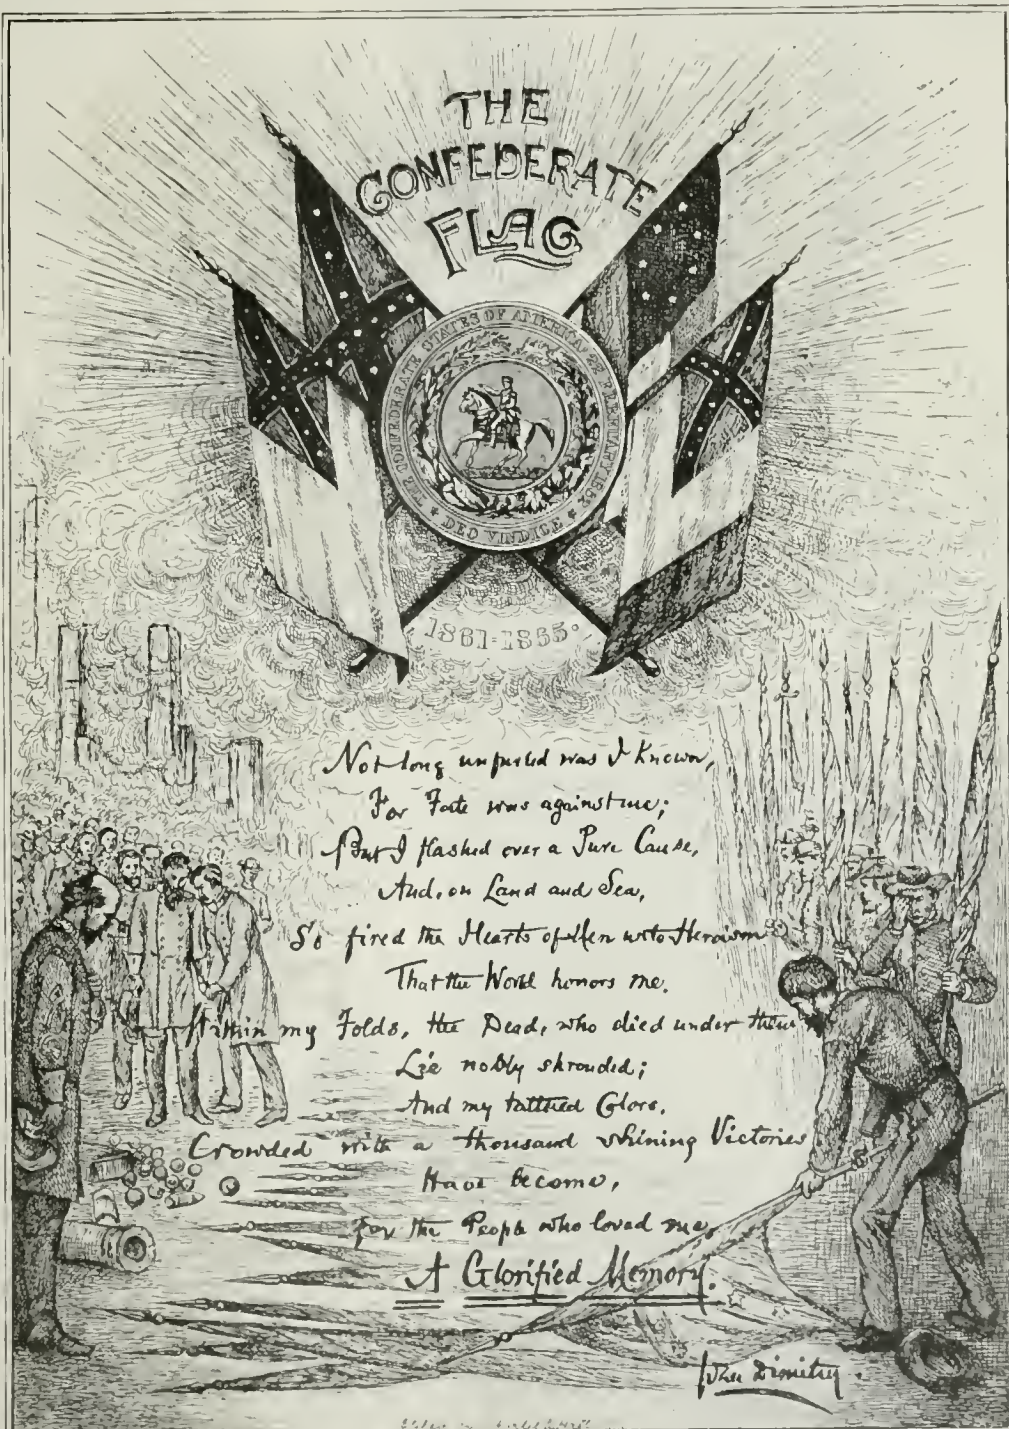 THE
CONFEDERATE
FLAG
THE CONFEDERATE STATES OF AMERICA: 22 FEBRUARY 1862
DEO VINDICE
1861=1865
Not long unfurled was I Known,
For Fate was against me;
But I flashed over a Pure Cause,
And, on Land and Sea,
So fired the Hearts of Men unto Heroism
That the World honors me.
Within my Folds, the Dead, who died under them
Lie nobly shrouded;
And my tattered Colors,
Crowded with a thousand shining Victories
Have become,
For the People who loved me,
A Glorified Memory.
John Dimitry.